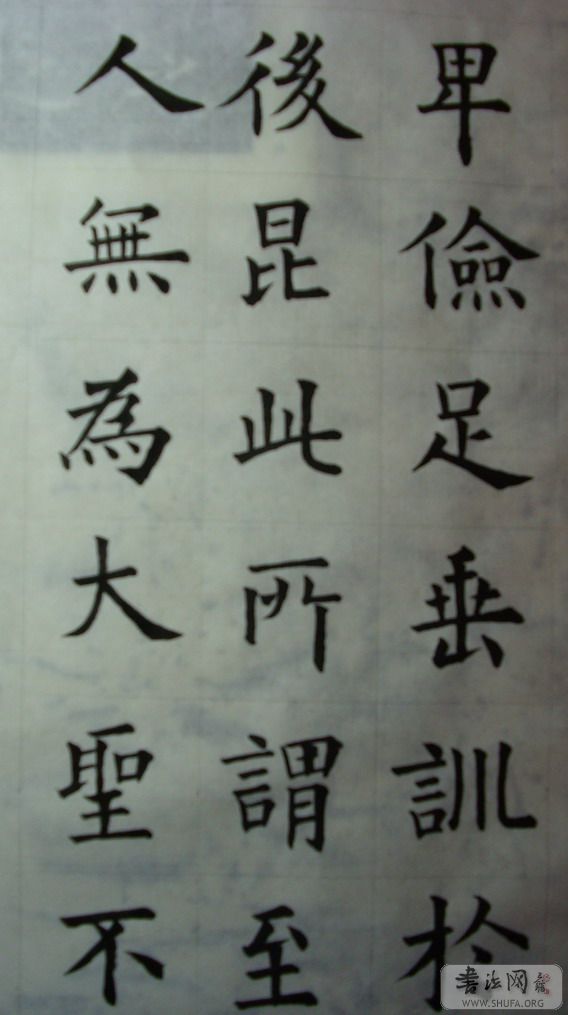 卑儉足垂訓於
後昆此所謂至
人無為大聖不
書法网
WWW.SHUFA.ORG